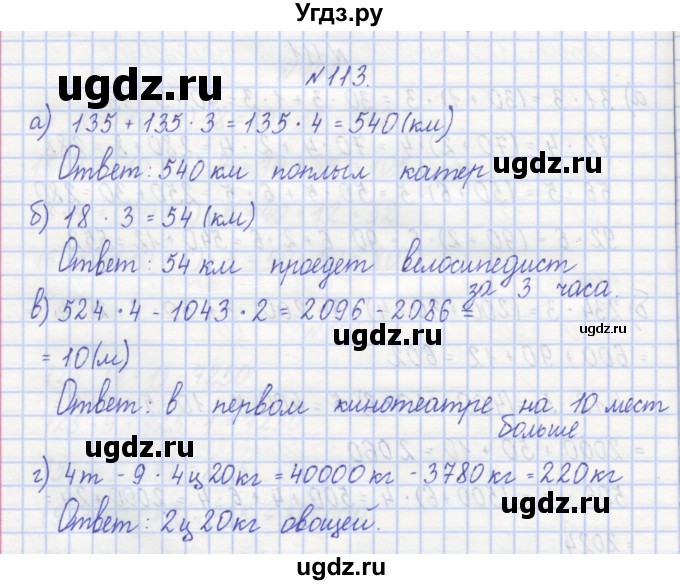 Угдз.ру
№113.
а) 135 + 135 · 3 = 135 · 4 = 540 (км)
Ответ: 540 км поплыл катер
б) 18 · 3 = 54 (км)
Ответ: 54 км проедет велосипедист
за 3 часа.
в) 524 · 4 - 1043 · 2 = 2096 - 2086 =
= 10 (м)
Ответ: в первом кинотеатре на 10 мест
больше
г) 4т - 9 · 4ц 20кг = 40000 кг - 3780 кг = 220 кг
Ответ: 2ц 20кг овощей.
ugdz.ru
ugdz.ru
ugdz.ru
ugdz.ru
ugdz.ru
ugdz.ru
ugdz.ru
ugdz.ru
ugdz.ru